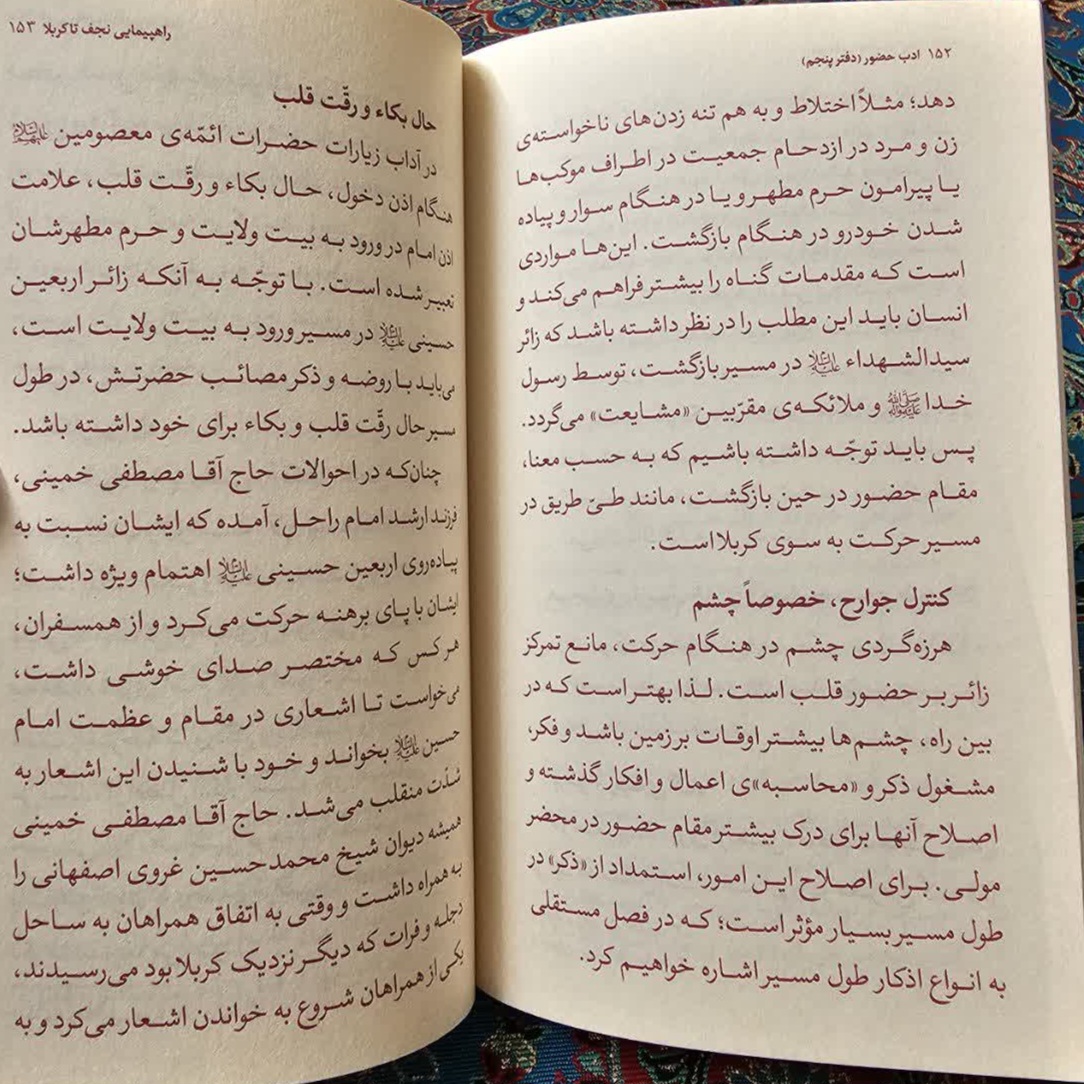 ۱۵۲ ادب حضور (دفتر پنجم)
دهد؛ مثلاً اختلاط و به هم تنه زدن‌های ناخواسته‌ی
زن و مرد در ازدحام جمعیت در اطراف موکب‌ها
یا پیرامون حرم مطهر و یا در هنگام سوار و پیاده
شدن خودرو در هنگام بازگشت. این‌ها مواردی
است که مقدمات گناه را بیشتر فراهم می‌کند و
انسان باید این مطلب را در نظر داشته باشد که زائر
سیدالشهداء علیه‌السلام در مسیر بازگشت، توسط رسول
خدا ﷺ و ملائکه‌ی مقرّبین «مشایعت» می‌گردد.
پس باید توجّه داشته باشیم که به حسب معنا،
مقام حضور در حین بازگشت، مانند طیّ طریق در
مسیر حرکت به سوی کربلا است.
کنترل جوارح، خصوصاً چشم
هرزه‌گردی چشم در هنگام حرکت، مانع تمرکز
زائر بر حضور قلب است. لذا بهتر است که در
بین راه، چشم‌ها بیشتر اوقات بر زمین باشد و فکر،
مشغول ذکر و «محاسبه»ی اعمال و افکار گذشته و
اصلاح آنها برای درک بیشتر مقام حضور در محضر
مولی. برای اصلاح این امور، استمداد از «ذکر» در
طول مسیر بسیار مؤثر است؛ که در فصل مستقلی
به انواع اذکار طول مسیر اشاره خواهیم کرد.
راهپیمایی نجف تا کربلا ۱۵۳
حال بکاء و رقّت قلب
در آداب زیارات حضرات ائمّه‌ی معصومین علیهم‌السلام
هنگام اذن دخول، حال بکاء و رقّت قلب، علامت
اذن امام در ورود به بیت ولایت و حرم مطهرشان
تعبیر شده است. با توجّه به آنکه زائر اربعین
حسینی علیه‌السلام در مسیر ورود به بیت ولایت است،
می‌باید با روضه و ذکر مصائب حضرتش، در طول
مسیر حال رقّت قلب و بکاء برای خود داشته باشد.
چنان‌که در احوالات حاج آقا مصطفی خمینی،
فرزند ارشد امام راحل، آمده که ایشان نسبت به
پیاده‌روی اربعین حسینی علیه‌السلام اهتمام ویژه داشت؛
ایشان با پای برهنه حرکت می‌کرد و از همسفران،
هر کس که مختصر صدای خوشی داشت،
می‌خواست تا اشعاری در مقام و عظمت امام
حسین علیه‌السلام بخواند و خود با شنیدن این اشعار به
شدّت منقلب می‌شد. حاج آقا مصطفی خمینی
همیشه دیوان شیخ محمدحسین غروی اصفهانی را
به همراه داشت و وقتی به اتفاق همراهان به ساحل
دجله و فرات که دیگر نزدیک کربلا بود می‌رسیدند،
یکی از همراهان شروع به خواندن اشعار می‌کرد و به